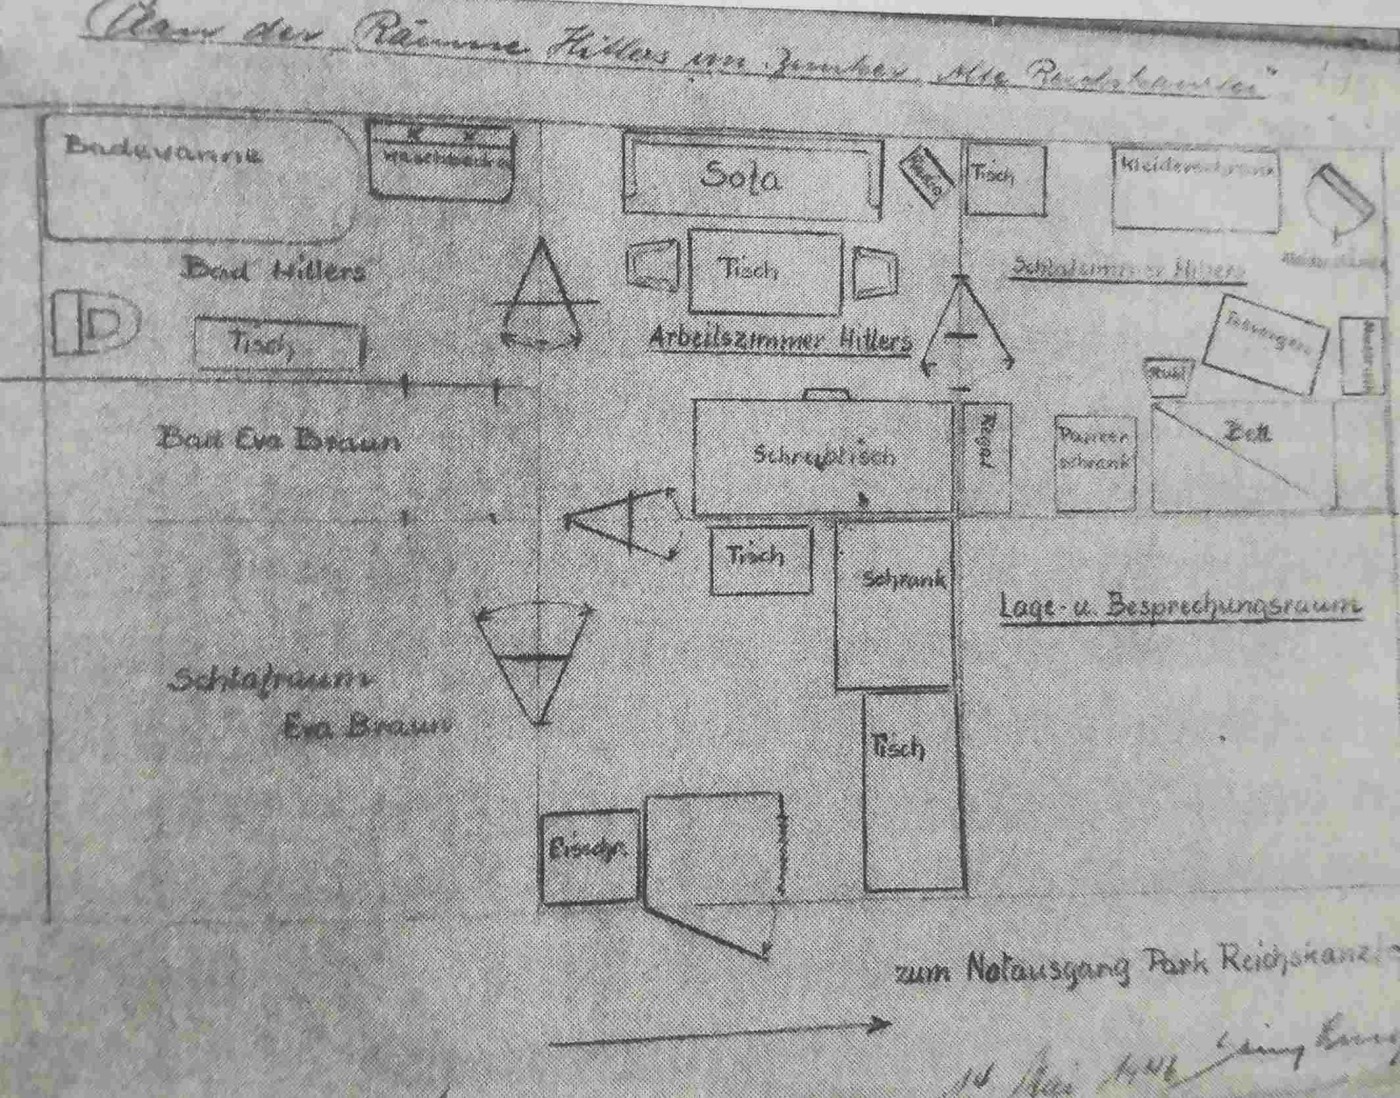 Plan der Räume Hitlers im Bunker "Alte Reichskanzlei"
Badewanne
Waschbecken
Sofa
Radio
Tisch
Kleiderschrank
Bad Hitlers
Tisch
Schlafzimmer Hitlers
Tisch
Arbeitszimmer Hitlers
Stuhl
Bad Eva Braun
Schreibtisch
Regal
Panzer
schrank
Bett
Tisch
Schrank
Lage- u. Besprechungsraum
Schlafraum
Eva Braun
Tisch
Eisschr.
zum Notausgang Park Reichskanzlei
14 Mai 1946